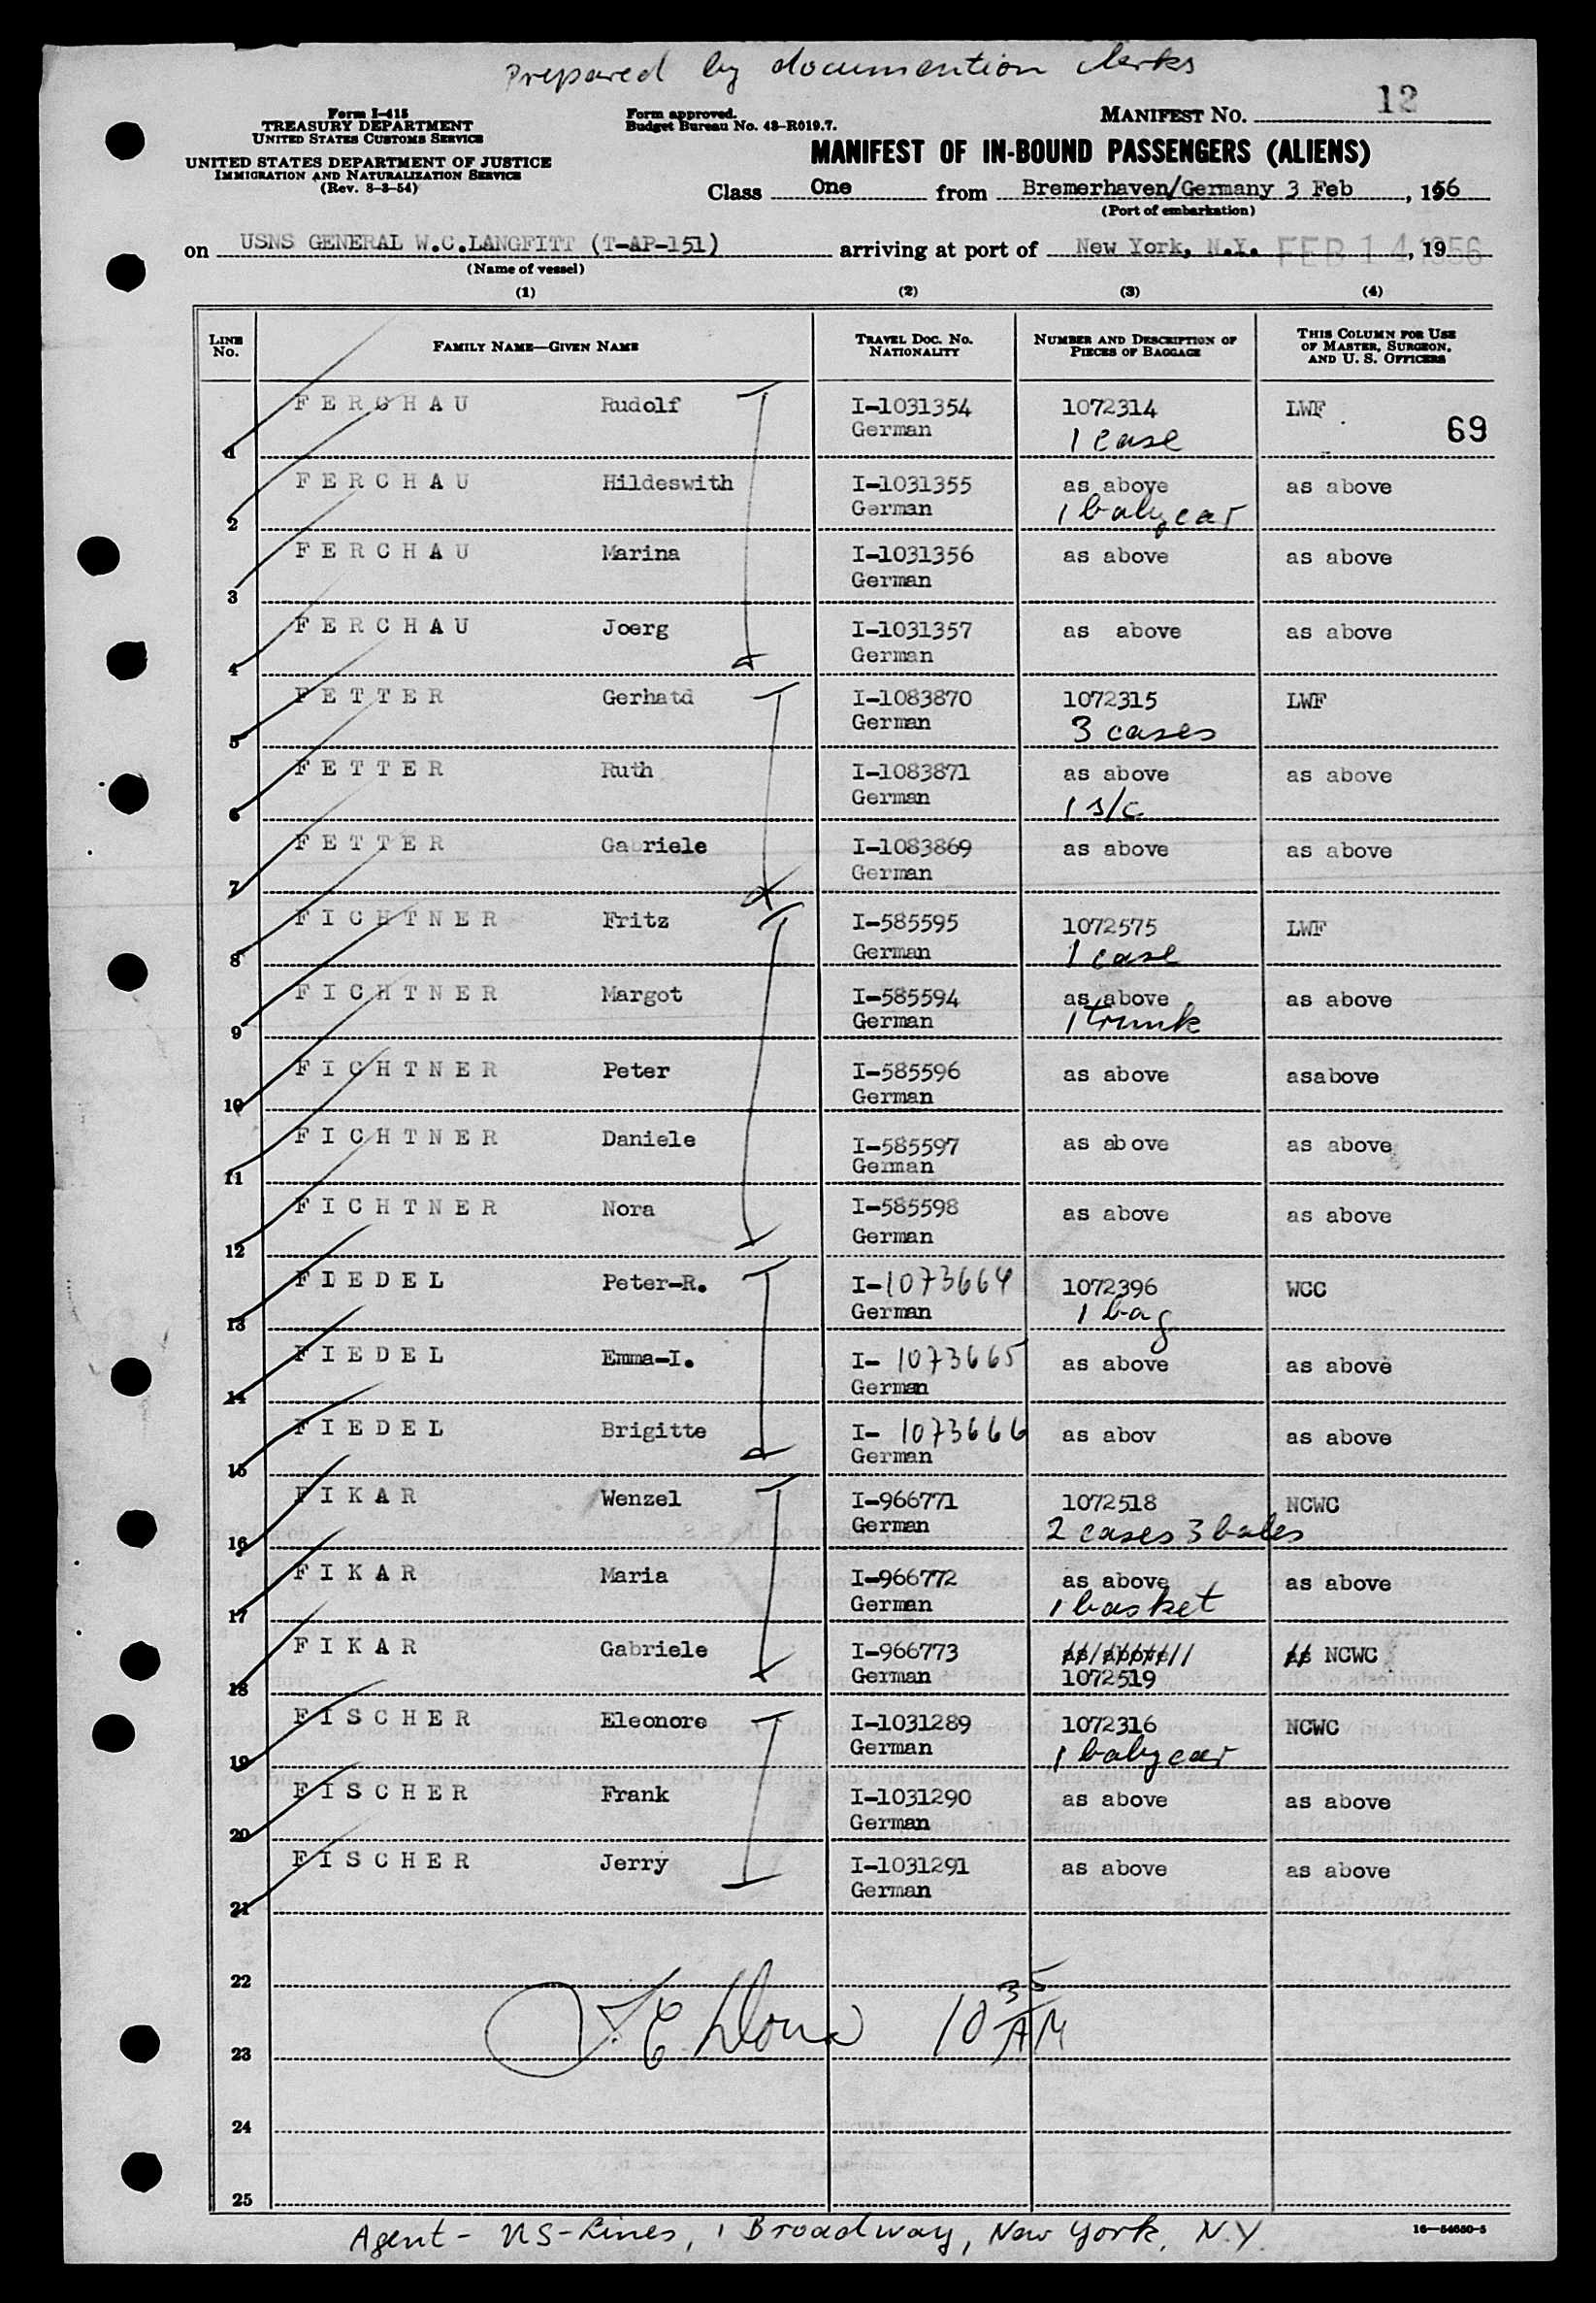 Prepared by documention clerks
Form I-415
TREASURY DEPARTMENT
UNITED STATES CUSTOMS SERVICE
UNITED STATES DEPARTMENT OF JUSTICE
IMMIGRATION AND NATURALIZATION SERVICE
(Rev. 8-3-54)
Form approved.
Budget Bureau No. 43-R019.7.
MANIFEST NO. 12
MANIFEST OF IN-BOUND PASSENGERS (ALIENS)
Class One from Bremerhaven/Germany 3 Feb, 1956
(Port of embarkation)
on USNS GENERAL W.C.LANGFITT (T-AP-151) arriving at port of New York, N.Y. FEB 14 1956, 19
(Name of vessel)
(1) (2) (3) (4)
LINE NO. FAMILY NAME—GIVEN NAME TRAVEL DOC. NO. NATIONALITY NUMBER AND DESCRIPTION OF PIECES OF BAGGAGE THIS COLUMN FOR USE OF MASTER, SURGEON, AND U. S. OFFICERS
1 FERCHAU Rudolf I-1031354 1072314 LWF
German 1 case 69
2 FERCHAU Hildeswith I-1031355 as above as above
German 1 babycar
3 FERCHAU Marina I-1031356 as above as above
German
4 FERCHAU Joerg I-1031357 as above as above
German
5 FETTER Gerhatd I-1083870 1072315 LWF
German 3 cases
6 FETTER Ruth I-1083871 as above as above
German 1 s/c
7 FETTER Gabriele I-1083869 as above as above
German
8 FICHTNER Fritz I-585595 1072575 LWF
German 1 case
9 FICHTNER Margot I-585594 as above as above
German 1 trunk
10 FICHTNER Peter I-585596 as above asabove
German
11 FICHTNER Daniele I-585597 as above as above
German
12 FICHTNER Nora I-585598 as above as above
German
13 FIEDEL Peter-R. I-1073664 1072396 WCC
German 1 bag
14 FIEDEL Emma-I. I-1073665 as above as above
German
15 FIEDEL Brigitte I-1073666 as abov as above
German
16 FIKAR Wenzel I-966771 1072518 NCWC
German 2 cases 3 bales
17 FIKAR Maria I-966772 as above as above
German 1 basket
18 FIKAR Gabriele I-966773 as above as NCWC
German 1072519
19 FISCHER Eleonore I-1031289 1072316 NCWC
German 1 babycar
20 FISCHER Frank I-1031290 as above as above
German
21 FISCHER Jerry I-1031291 as above as above
German
22
23 10 35 AM
24
25
Agent - US-Lines, 1 Broadway, New York, N.Y.
16—54650-5